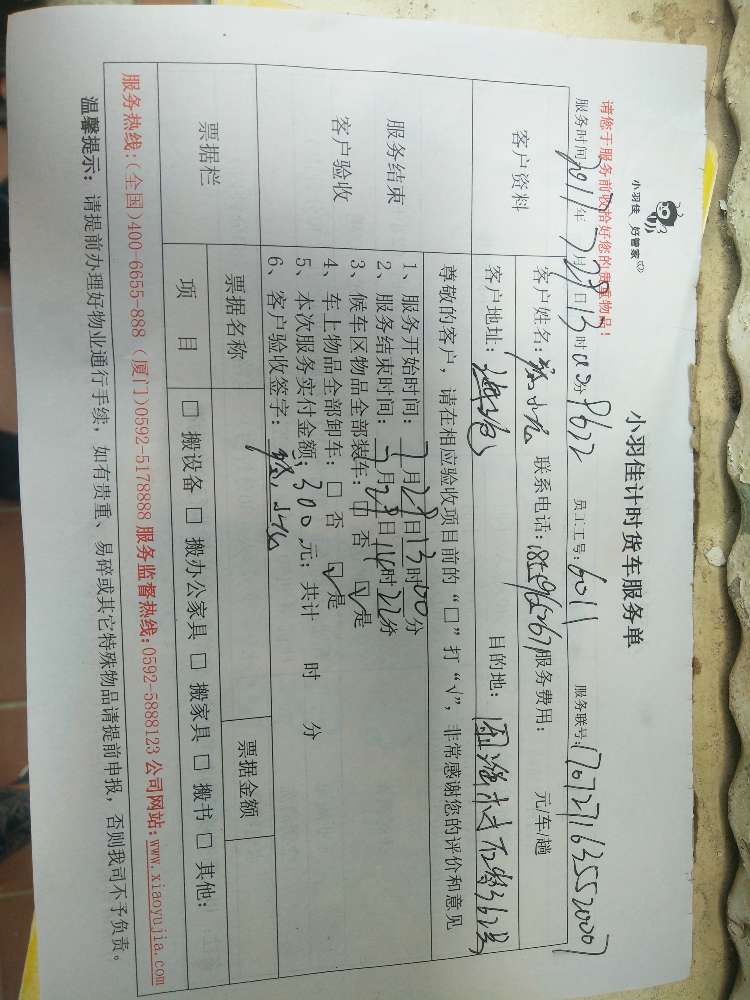 小羽佳 好管家
小羽佳计时货车服务单
请您于服务前收拾好您的贵重物品！
服务时间 2017年7月28日13时00分 8622 员工工号：6011 服务联号：
客户资料
客户姓名： 联系电话： 服务费用： 元/车/趟
客户地址： 目的地：
尊敬的客户，请在相应验收项目前的“口”打“√”，非常感谢您的评价和意见
服务结束
客户验收
1、服务开始时间：7月28日13时00分
2、服务结束时间：7月28日14时22分
3、候车区物品全部装车：□ 否 ☑是
4、车上物品全部卸车：□ 否 ☑是
5、本次服务实付金额：300元；共计 时 分
6、客户验收签字：
票据栏
票据名称 票据金额
项 目 □ 搬设备 □ 搬办公家具 □ 搬家具 □ 搬书 □ 其他：
服务热线：(全国)400-6655-888 (厦门)0592-5178888 服务监督热线：0592-5888123 公司网站：www.xiaoyujia.com
温馨提示：请提前办理好物业通行手续，如有贵重、易碎或其它特殊物品请提前申报，否则我司不予负责。